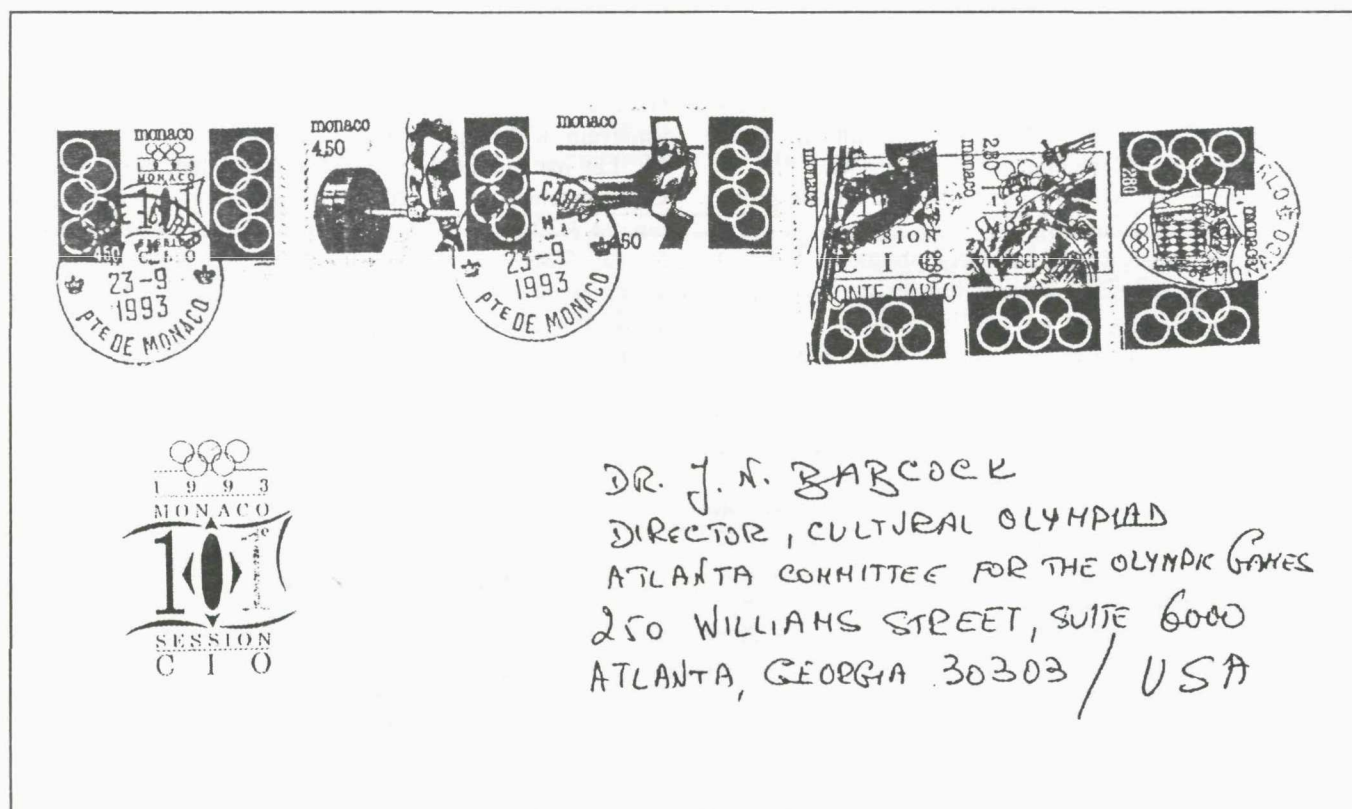 monaco
1 9 9 3
MONACO
4,50
23-9
1993
PTE DE MONACO
monaco
4,50
monaco
4,50
CARLO
23-9
1993
PTE DE MONACO
monaco
SESSION
C I O
MONTE CARLO
2,80
monaco
SEPT
2,80
monaco
1 9 9 3
MONACO
101e
SESSION
C I O
DR. J. N. BABCOCK
DIRECTOR, CULTURAL OLYMPIAD
ATLANTA COMMITTEE FOR THE OLYMPIC GAMES
250 WILLIAMS STREET, SUITE 6000
ATLANTA, GEORGIA 30303 / USA